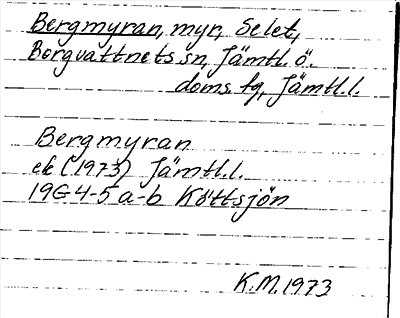 Bergmyran, myr, Selet,
Borgvattnets sn, Jämtl. ö.
doms. fg, Jämtl. l.
Bergmyran
ek (1973) Jämtl. l.
19G 4-5 a-b Köttsjön
K.M. 1973